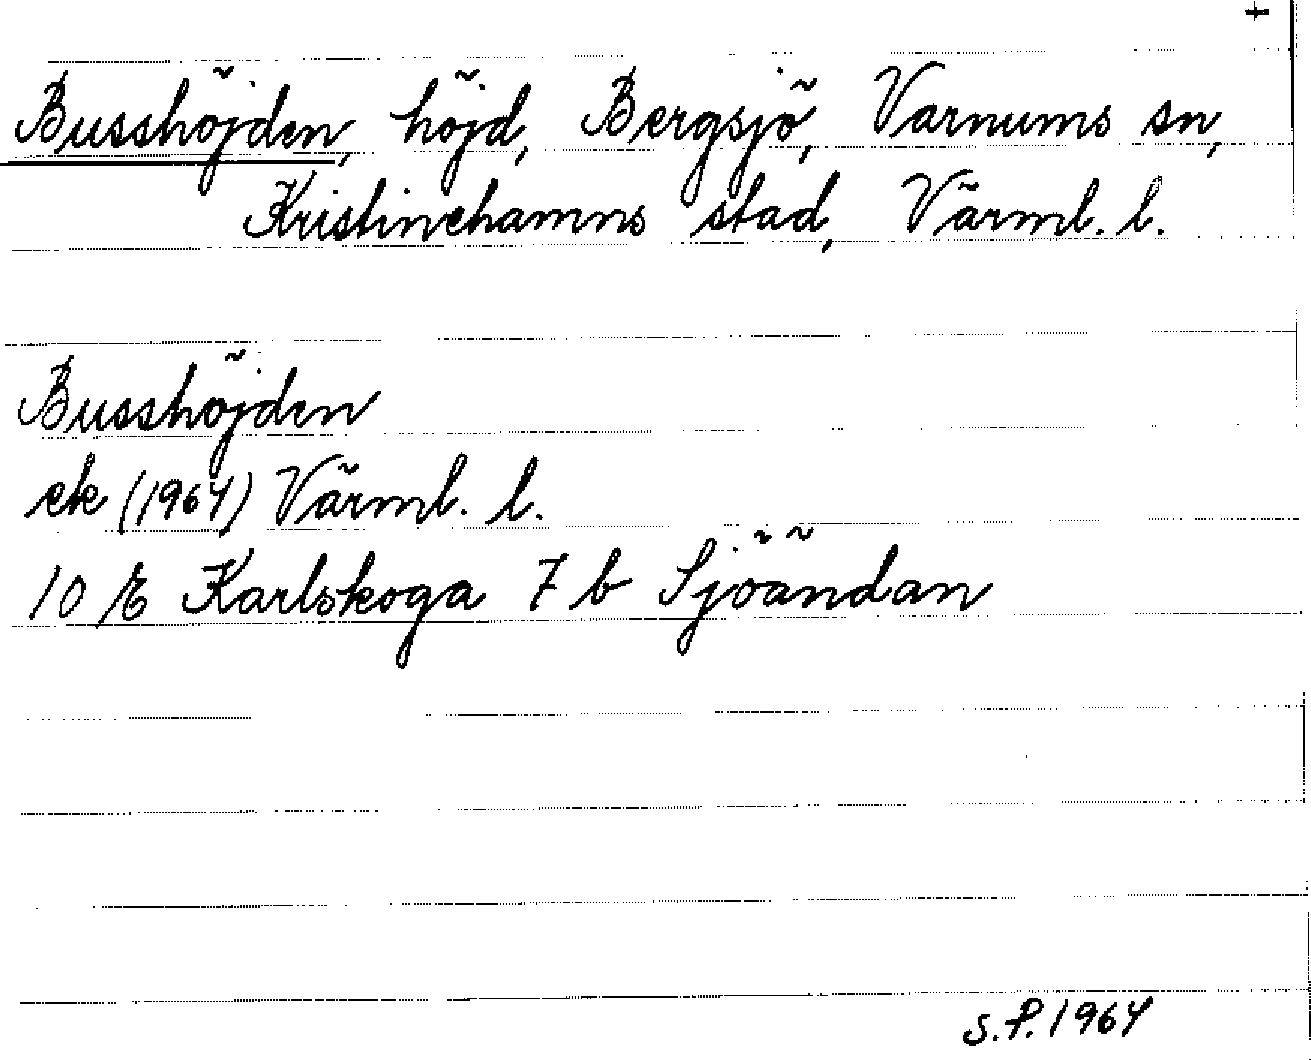 Busshöjden, höjd, Bergsjö, Varnums sn,
Kristinehamns stad, Värml. l.
Busshöjden
ek (1964) Värml. l.
10 E Karlskoga 7 b Sjöändan
S.P. 1964